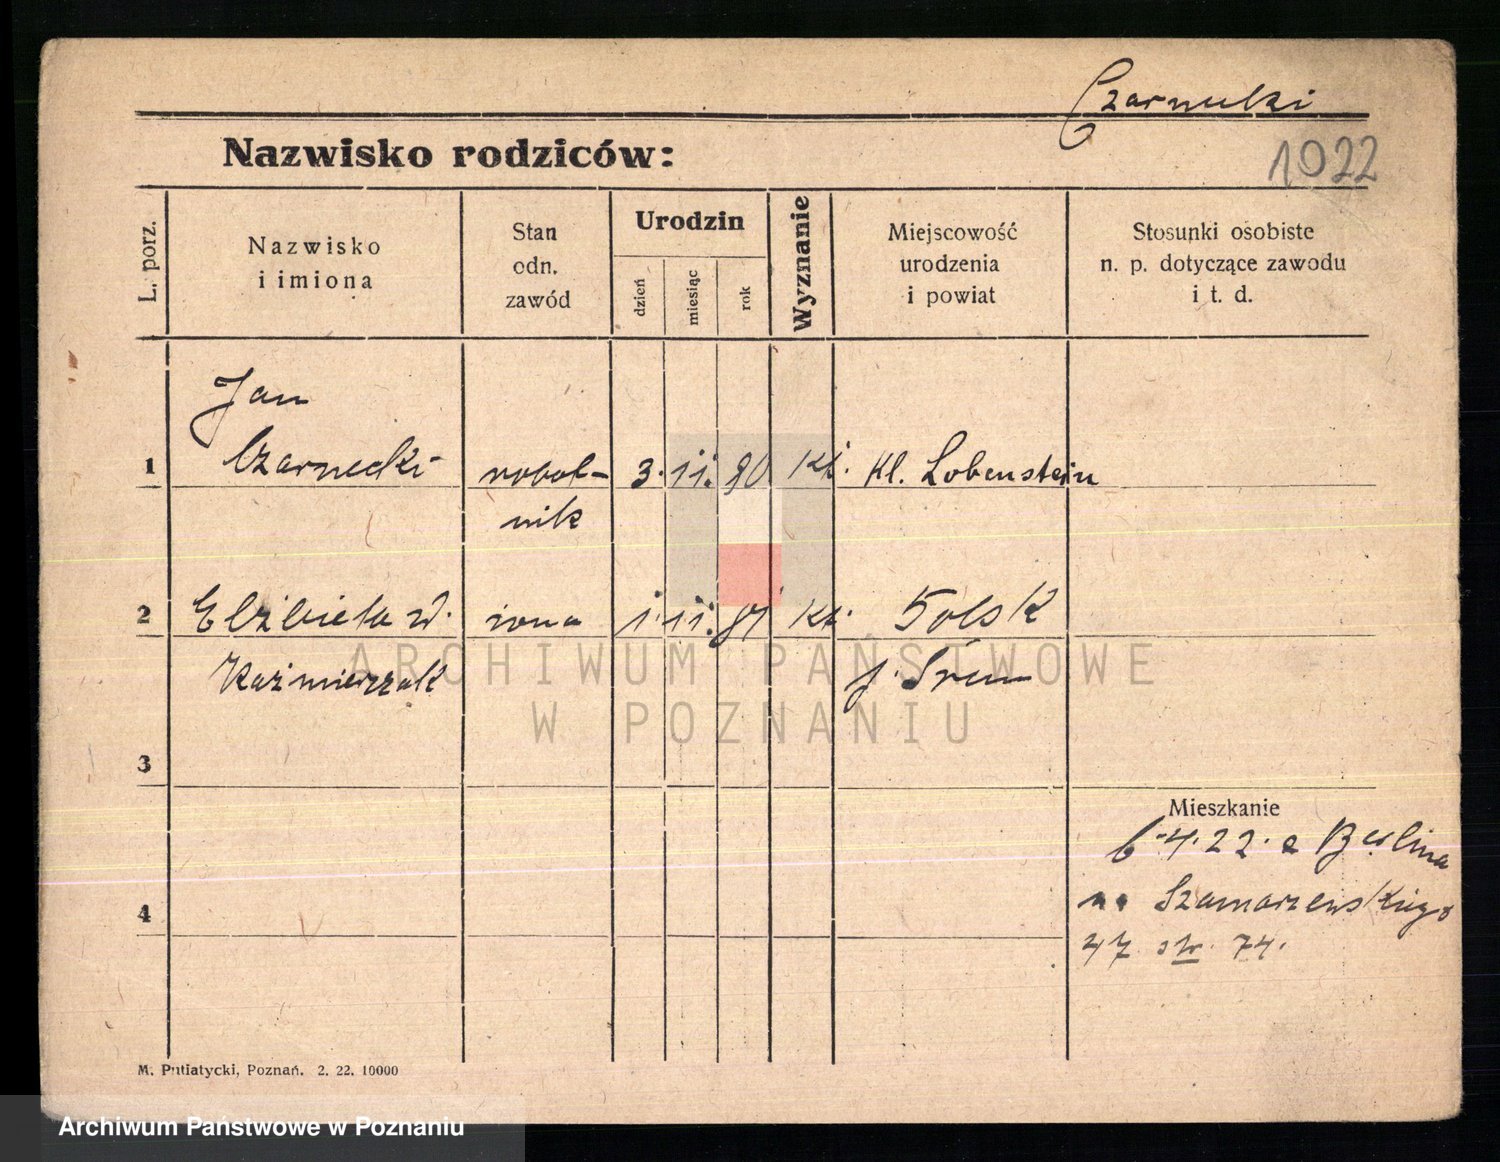 Czarnecki
1022
Nazwisko rodziców:
L. porz.
Nazwisko
i imiona
Stan
odn.
zawód
Urodzin
dzień
miesiąc
rok
Wyznanie
Miejscowość
urodzenia
i powiat
Stosunki osobiste
n. p. dotyczące zawodu
i t. d.
Jan
1 Czarnecki robot- 3. 11. 90 kt. Kl. Lobenstein
nik
2 Elżbieta żona 1. 11. kt.
Kaźmierzak Śrem
3
Mieszkanie
6-4.22. z Berlina
na Szamarzewskiego
47 str. 74.
4
M. Putiatycki, Poznań. 2. 22. 10000
ARCHIWUM PAŃSTWOWE
W POZNANIU
Archiwum Państwowe w Poznaniu